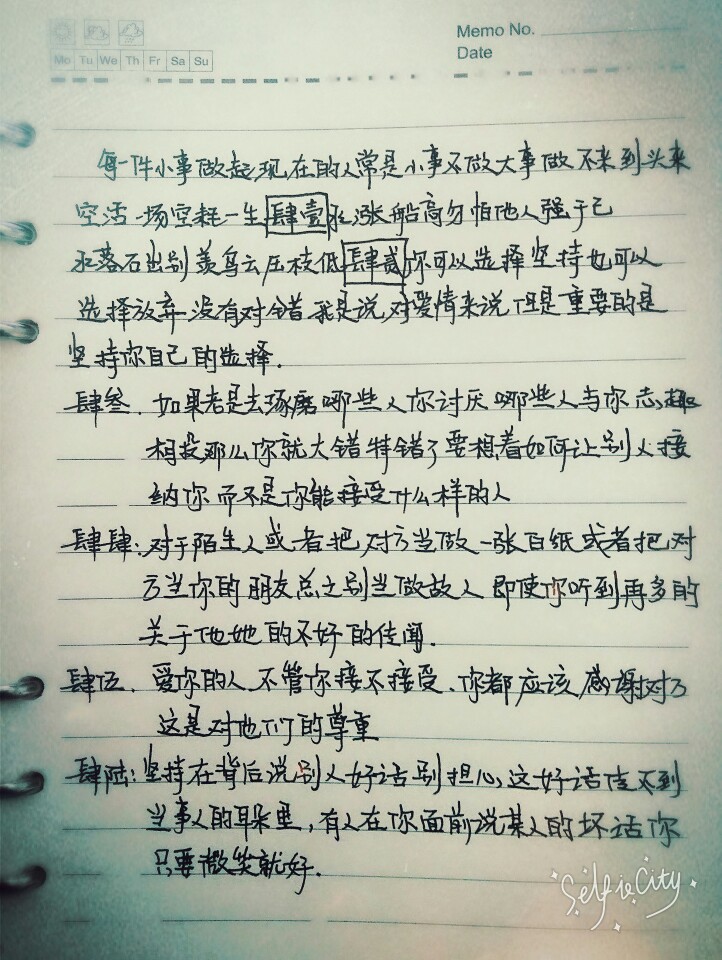 Memo No.
Date
Mo Tu We Th Fr Sa Su
每一件小事做起现在的人常是小事不做大事做不来到头来
空活一场空耗一生肆壹水涨船高勿怕他人强于己
水落石出别羡乌云压枝低肆贰你可以选择坚持也可以
选择放弃没有对错我是说对爱情来说但是重要的是
坚持你自己的选择.
肆叁.如果老是去琢磨哪些人你讨厌哪些人与你志趣
相投那么你就大错特错了要想着如何让别人接
纳你而不是你能接受什么样的人
肆肆:对于陌生人或者把对方当做一张白纸或者把对
方当你的朋友总之别当做敌人即使你听到再多的
关于他她的不好的传闻.
肆伍.爱你的人.不管你接不接受.你都应该感谢对方
这是对他们的尊重
肆陆:坚持在背后说别人好话别担心,这好话传不到
当事人的耳朵里,有人在你面前说某人的坏话你
只要微笑就好.
SelfieCity